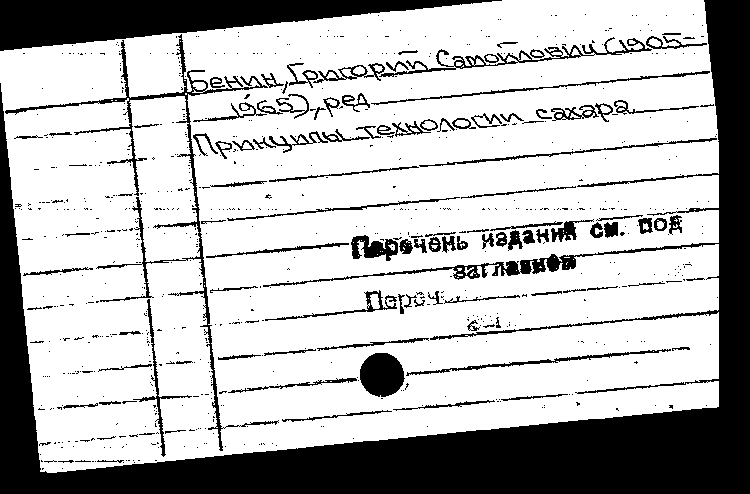 Бенин, Григорий Самойлович (1905-
1965), ред
Принципы технологии сахара.
Перечень изданий см. под
заглавием
Переч